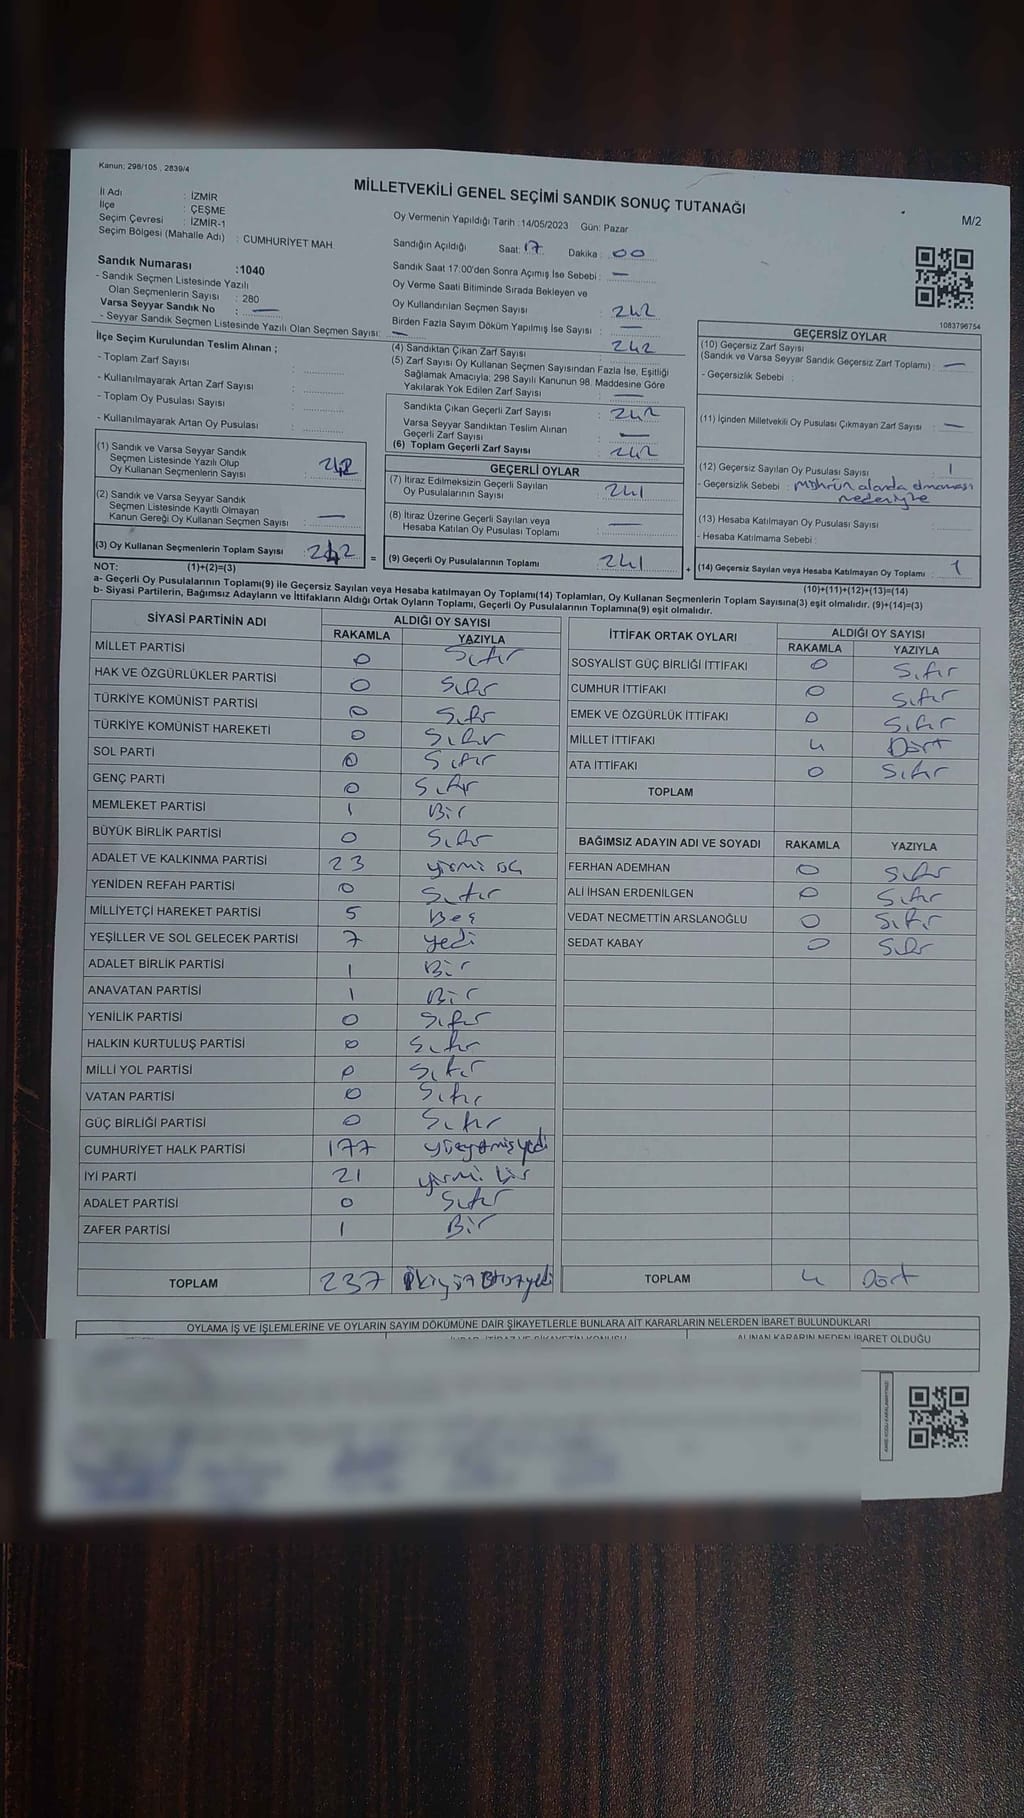 Kanun: 298/105 , 2839/4
MİLLETVEKİLİ GENEL SEÇİMİ SANDIK SONUÇ TUTANAĞI
M/2
İl Adı : İZMİR
İlçe : ÇEŞME
Seçim Çevresi : İZMİR-1
Seçim Bölgesi (Mahalle Adı) : CUMHURİYET MAH.
Sandık Numarası :1040
- Sandık Seçmen Listesinde Yazılı
Olan Seçmenlerin Sayısı : 280
Varsa Seyyar Sandık No : —
- Seyyar Sandık Seçmen Listesinde Yazılı Olan Seçmen Sayısı: —
İlçe Seçim Kurulundan Teslim Alınan ;
- Toplam Zarf Sayısı :
- Kullanılmayarak Artan Zarf Sayısı :
- Toplam Oy Pusulası Sayısı :
- Kullanılmayarak Artan Oy Pusulası :
(1) Sandık ve Varsa Seyyar Sandık
Seçmen Listesinde Yazılı Olup
Oy Kullanan Seçmenlerin Sayısı : 242
(2) Sandık ve Varsa Seyyar Sandık
Seçmen Listesinde Kayıtlı Olmayan
Kanun Gereği Oy Kullanan Seçmen Sayısı : —
(3) Oy Kullanan Seçmenlerin Toplam Sayısı : 242 =
Oy Vermenin Yapıldığı Tarih :14/05/2023 Gün: Pazar
Sandığın Açıldığı Saat: 17 Dakika : 00
Sandık Saat 17:00'den Sonra Açımış İse Sebebi : —
Oy Verme Saati Bitiminde Sırada Bekleyen ve
Oy Kullandırılan Seçmen Sayısı : 242
Birden Fazla Sayım Döküm Yapılmış İse Sayısı : —
(4) Sandıktan Çıkan Zarf Sayısı : 242
(5) Zarf Sayısı Oy Kullanan Seçmen Sayısından Fazla İse, Eşitliği
Sağlamak Amacıyla, 298 Sayılı Kanunun 98. Maddesine Göre
Yakılarak Yok Edilen Zarf Sayısı : —
Sandıkta Çıkan Geçerli Zarf Sayısı : 242
Varsa Seyyar Sandıktan Teslim Alınan
Geçerli Zarf Sayısı : —
(6) Toplam Geçerli Zarf Sayısı : 242
GEÇERLİ OYLAR
(7) İtiraz Edilmeksizin Geçerli Sayılan
Oy Pusulalarının Sayısı : 241
(8) İtiraz Üzerine Geçerli Sayılan veya
Hesaba Katılan Oy Pusulaları Toplamı : —
(9) Geçerli Oy Pusulalarının Toplamı : 241 +
1083796754
GEÇERSİZ OYLAR
(10) Geçersiz Zarf Sayısı
(Sandık ve Varsa Seyyar Sandık Geçersiz Zarf Toplamı) : —
- Geçersizlik Sebebi :
(11) İçinden Milletvekili Oy Pusulası Çıkmayan Zarf Sayısı : —
(12) Geçersiz Sayılan Oy Pusulası Sayısı : 1
- Geçersizlik Sebebi : mührün alanda olmaması
nedeniyle
(13) Hesaba Katılmayan Oy Pusulası Sayısı :
- Hesaba Katılmama Sebebi :
(14) Geçersiz Sayılan veya Hesaba Katılmayan Oy Toplamı : 1
NOT: (1)+(2)=(3) (10)+(11)+(12)+(13)=(14)
a- Geçerli Oy Pusulalarının Toplamı(9) ile Geçersiz Sayılan veya Hesaba katılmayan Oy Toplamı(14) Toplamları, Oy Kullanan Seçmenlerin Toplam Sayısına(3) eşit olmalıdır. (9)+(14)=(3)
b- Siyasi Partilerin, Bağımsız Adayların ve İttifakların Aldığı Ortak Oyların Toplamı, Geçerli Oy Pusulalarının Toplamına(9) eşit olmalıdır.
SİYASİ PARTİNİN ADI ALDIĞI OY SAYISI
RAKAMLA YAZIYLA
MİLLET PARTİSİ 0 Sıfır
HAK VE ÖZGÜRLÜKLER PARTİSİ 0 Sıfır
TÜRKİYE KOMÜNİST PARTİSİ 0 Sıfır
TÜRKİYE KOMÜNİST HAREKETİ 0 Sıfır
SOL PARTİ 0 Sıfır
GENÇ PARTİ 0 Sıfır
MEMLEKET PARTİSİ 1 Bir
BÜYÜK BİRLİK PARTİSİ 0 Sıfır
ADALET VE KALKINMA PARTİSİ 23 yirmi üç
YENİDEN REFAH PARTİSİ 0 Sıfır
MİLLİYETÇİ HAREKET PARTİSİ 5 Beş
YEŞİLLER VE SOL GELECEK PARTİSİ 7 yedi
ADALET BİRLİK PARTİSİ 1 Bir
ANAVATAN PARTİSİ 1 Bir
YENİLİK PARTİSİ 0 Sıfır
HALKIN KURTULUŞ PARTİSİ 0 Sıfır
MİLLİ YOL PARTİSİ 0 Sıfır
VATAN PARTİSİ 0 Sıfır
GÜÇ BİRLİĞİ PARTİSİ 0 Sıfır
CUMHURİYET HALK PARTİSİ 177 yüzyetmişyedi
İYİ PARTİ 21 yirmi bir
ADALET PARTİSİ 0 Sıfır
ZAFER PARTİSİ 1 Bir
TOPLAM 237 ikiyüz otuzyedi
İTTİFAK ORTAK OYLARI ALDIĞI OY SAYISI
RAKAMLA YAZIYLA
SOSYALİST GÜÇ BİRLİĞİ İTTİFAKI 0 Sıfır
CUMHUR İTTİFAKI 0 Sıfır
EMEK VE ÖZGÜRLÜK İTTİFAKI 0 Sıfır
MİLLET İTTİFAKI 4 Dört
ATA İTTİFAKI 0 Sıfır
TOPLAM
BAĞIMSIZ ADAYIN ADI VE SOYADI RAKAMLA YAZIYLA
FERHAN ADEMHAN 0 Sıfır
ALİ İHSAN ERDENİLGEN 0 Sıfır
VEDAT NECMETTİN ARSLANOĞLU 0 Sıfır
SEDAT KABAY 0 Sıfır
TOPLAM 4 Dört
OYLAMA İŞ VE İŞLEMLERİNE VE OYLARIN SAYIM DÖKÜMÜNE DAİR ŞİKAYETLERLE BUNLARA AİT KARARLARIN NELERDEN İBARET BULUNDUKLARI
ALINAN KARARIN NEDEN İBARET OLDUĞU